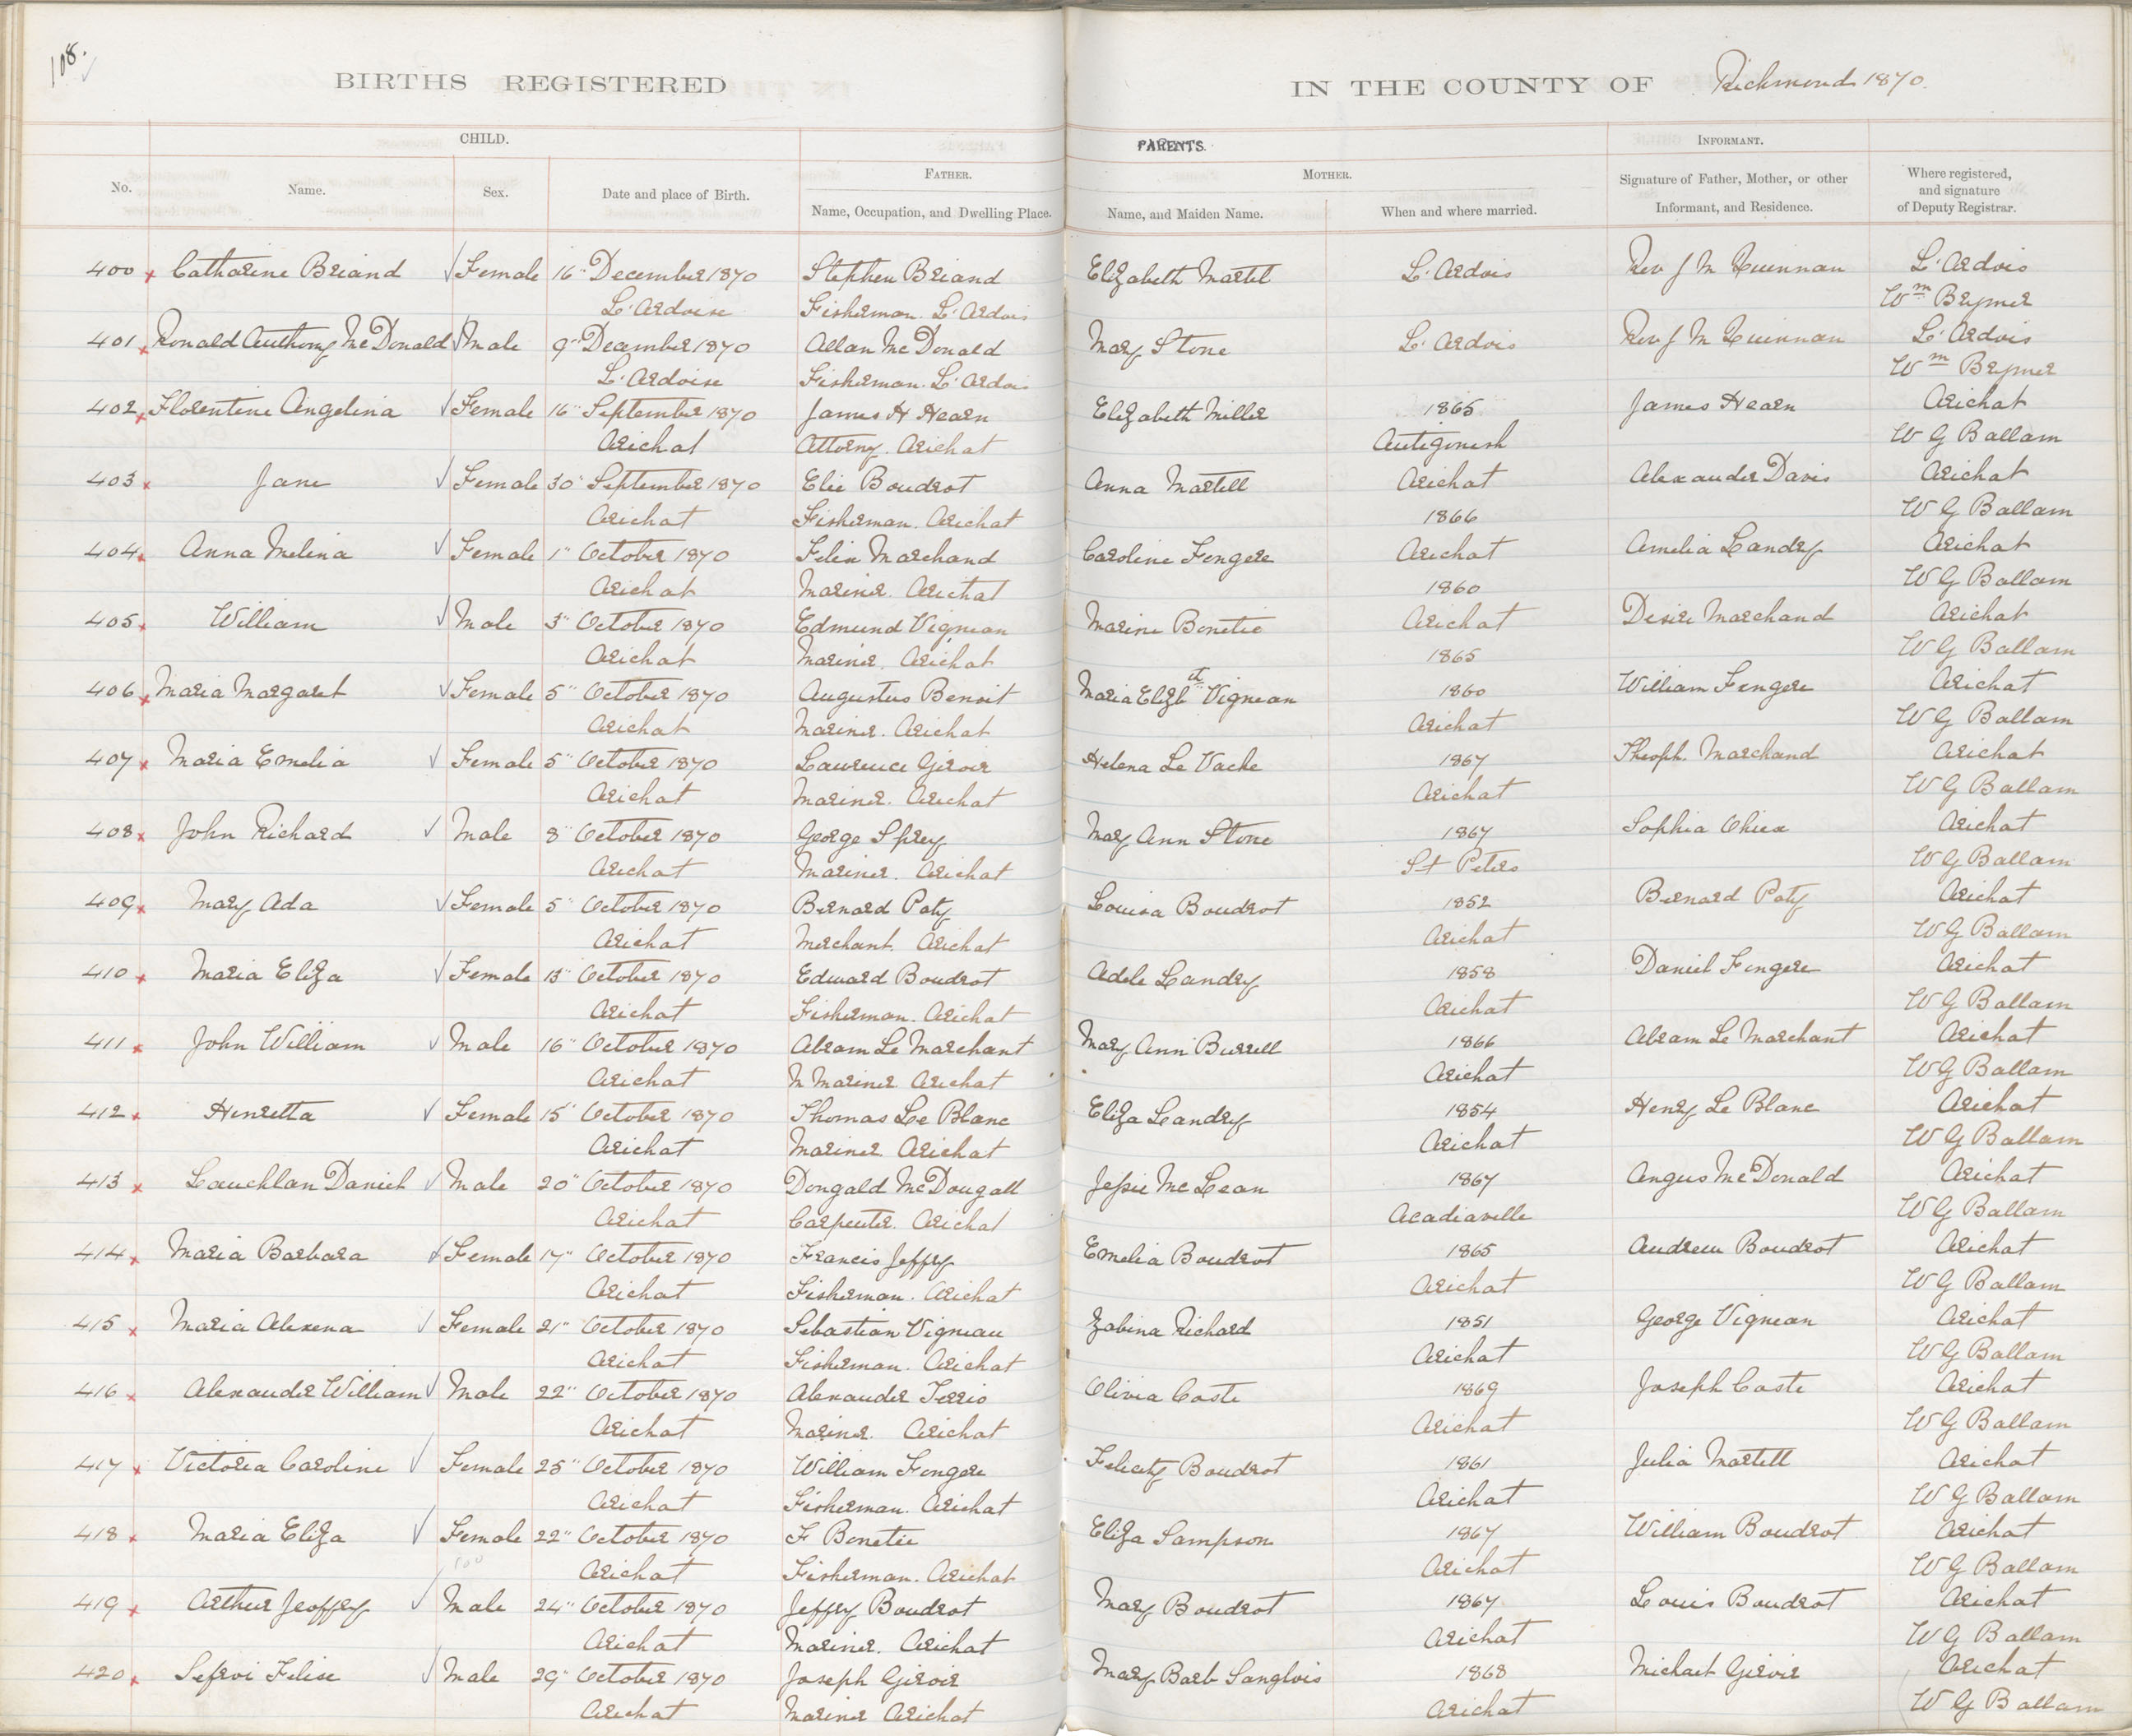 108.
BIRTHS REGISTERED IN THE COUNTY OF Richmond 1870.
CHILD. PARENTS. INFORMANT.
No. Name. Sex. Date and place of Birth. FATHER. Name, Occupation, and Dwelling Place. MOTHER. Name, and Maiden Name. When and where married. Signature of Father, Mother, or other Informant, and Residence. Where registered, and signature of Deputy Registrar.
400 Catharine Briand Female 16" December 1870 Stephen Briand Elizabeth Martel L'Ardois Rev J M Quinnan L'Ardois
L'Ardoise Fisherman. L'Ardois Wm Brymer
401 Ronald Anthony McDonald Male 9" December 1870 Allan McDonald Mary Stone L'Ardois Rev J M Quinnan L'Ardois
L'Ardoise Fisherman. L'Ardois Wm Brymer
402 Florentine Angelina Female 16" September 1870 James H Hearn Elizabeth Miller 1865 James Hearn Arichat
Arichat Attorny. Arichat Antigonish W G Ballam
403 Jane Female 30" September 1870 Elie Boudrot Anna Martell Arichat Alexander Davis Arichat
Arichat Fisherman. Arichat 1866 W G Ballam
404 Anna Melina Female 1" October 1870 Felix Marchand Caroline Fengere Arichat Amelia Landry Arichat
Arichat Mariner. Arichat 1860 W G Ballam
405 William Male 3" October 1870 Edmund Vignean Marine Benetie Arichat Desire Marchand Arichat
Arichat Mariner. Arichat 1865 W G Ballam
406 Maria Margaret Female 5" October 1870 Augustus Benoit Maria Elizbth Vignean 1860 William Fengere Arichat
Arichat Mariner. Arichat Arichat W G Ballam
407 Maria Emelia Female 5" October 1870 Lawrence Giroir Helena Le Vache 1867 Theoph. Marchand Arichat
Arichat Mariner. Arichat Arichat W G Ballam
408 John Richard Male 8" October 1870 George Sprey Mary Ann Stone 1867 Sophia Arichat
Arichat Mariner. Arichat St Peters W G Ballam
409 Mary Ada Female 5" October 1870 Bernard Poty Louisa Boudrot 1852 Bernard Poty Arichat
Arichat Merchant. Arichat Arichat W G Ballam
410 Maria Eliza Female 13" October 1870 Edward Boudrot Adele Landry 1858 Daniel Fengere Arichat
Arichat Fisherman. Arichat Arichat W G Ballam
411 John William Male 16" October 1870 Abram Le Marchant Mary Ann Burrell 1866 Abram Le Marchant Arichat
Arichat M Mariner Arichat Arichat W G Ballam
412 Henretta Female 15" October 1870 Thomas Le Blanc Eliza Landry 1854 Henry Le Blanc Arichat
Arichat Mariner Arichat Arichat W G Ballam
413 Lauchlan Daniel Male 20" October 1870 Dongald McDougall Jessie McLean 1867 Angus McDonald Arichat
Arichat Carpenter. Arichat Acadiaville W G Ballam
414 Maria Barbara Female 17" October 1870 Francis Jeffry Emelia Boudrot 1865 Andrew Boudrot Arichat
Arichat Fisherman. Arichat Arichat W G Ballam
415 Maria Alexena Female 21" October 1870 Sebastian Vigneau Zabina Richard 1851 George Vignean Arichat
Arichat Fisherman. Arichat Arichat W G Ballam
416 Alexander William Male 22" October 1870 Alexander Terrio Olivia Coste 1869 Joseph Coste Arichat
Arichat Mariner. Arichat Arichat W G Ballam
417 Victoria Caroline Female 25" October 1870 William Fengere Felicity Boudrot 1861 Julia Martell Arichat
Arichat Fisherman. Arichat Arichat W G Ballam
418 Maria Eliza Female 22" October 1870 F Benetie Eliza Sampson 1867 William Boudrot Arichat
Arichat Fisherman. Arichat Arichat W G Ballam
419 Arthur Jeoffry Male 24" October 1870 Jeffry Boudrot Mary Boudrot 1867 Louis Boudrot Arichat
Arichat Mariner. Arichat Arichat W G Ballam
420 Sefroi Felise Male 29" October 1870 Joseph Giroir Mary Barb Langlois 1868 Michael Giroir Arichat
Arichat Mariner Arichat Arichat W G Ballam